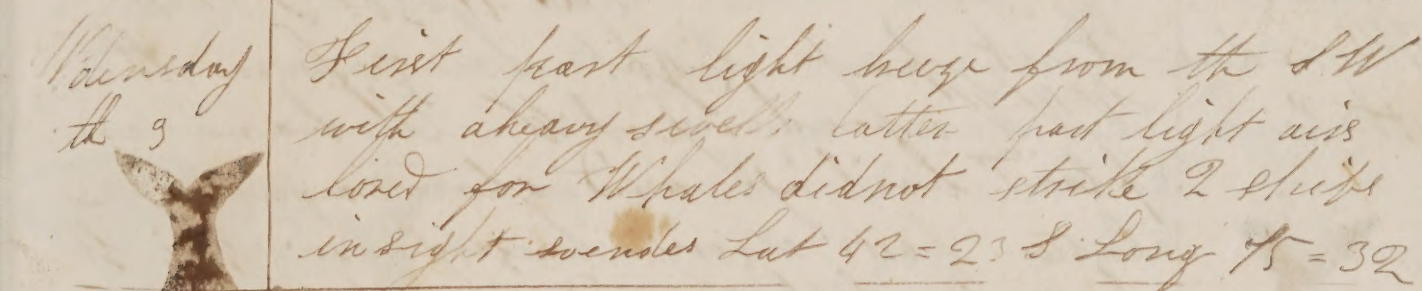 Wdensday
th 9
First part light breeze from th S W
with aheavy swell latter part light airs
lored for Whales didnot strike 2 ships
in sight Lat 42 = 23 S Long 75 = 32